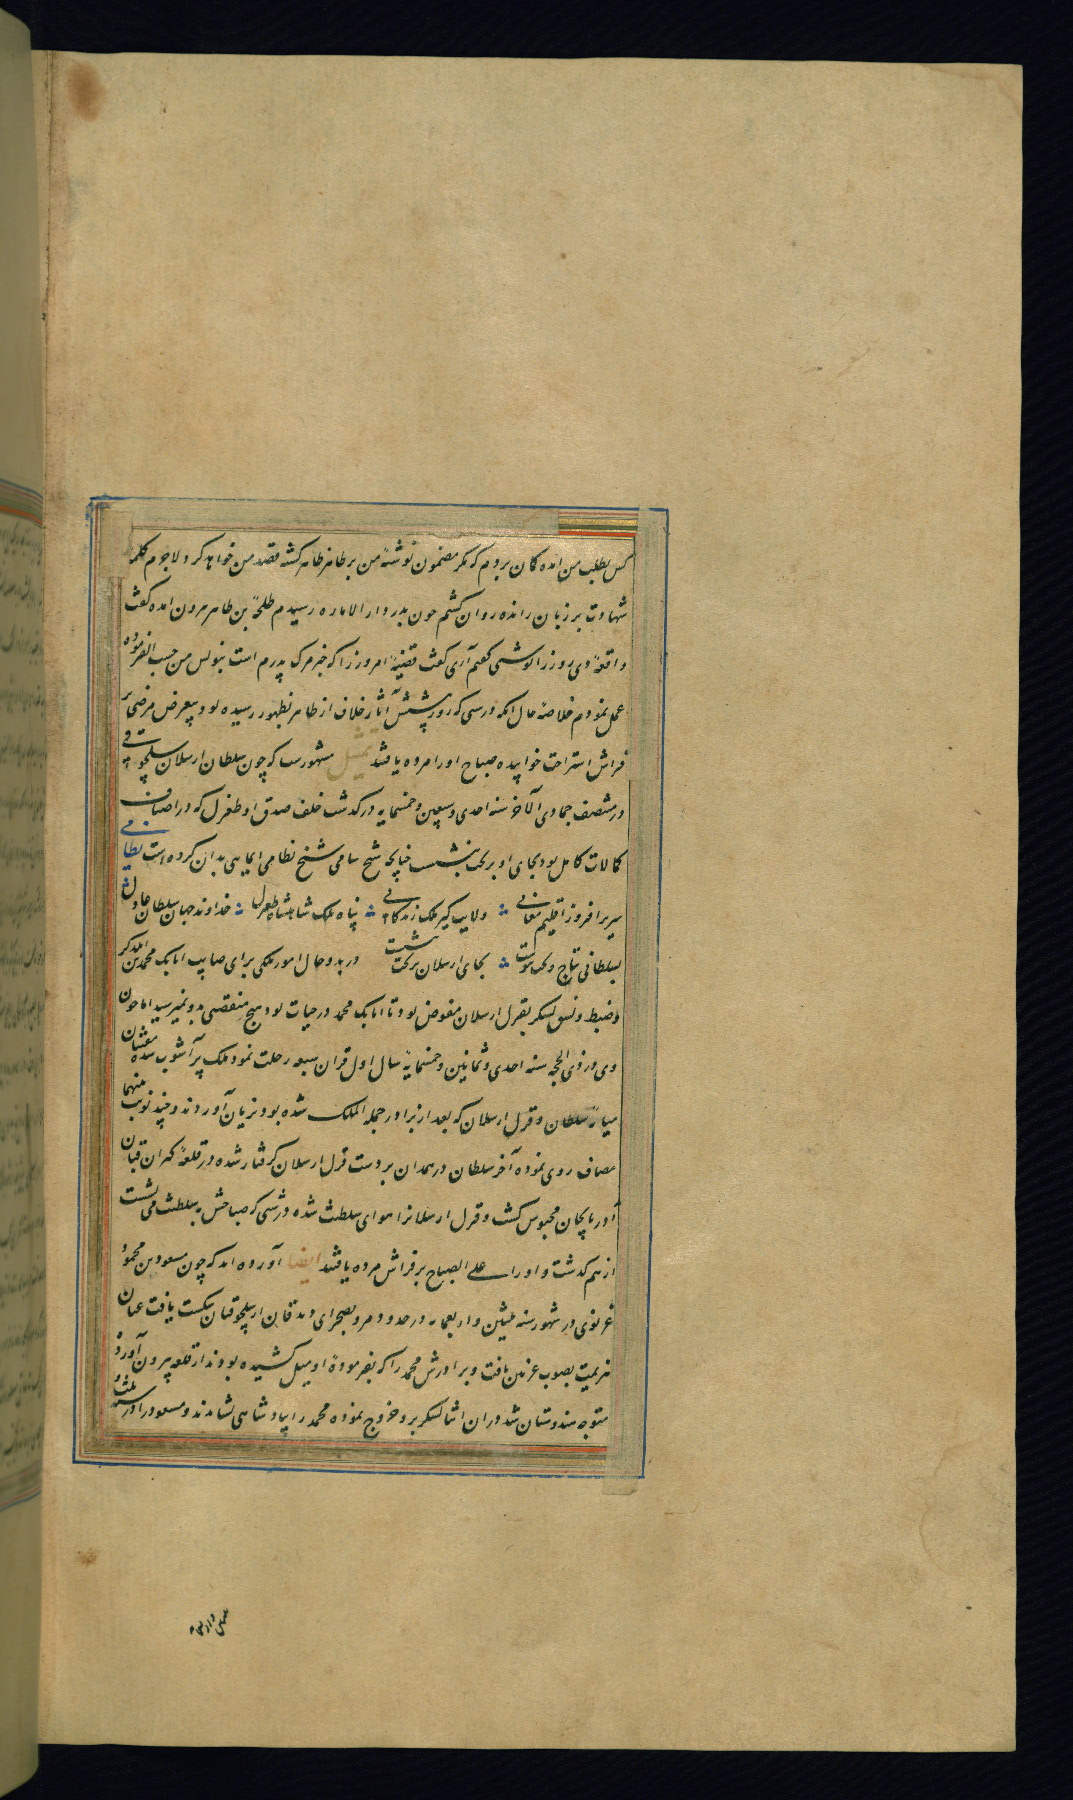 کس بطلب من امده کان بردم که مکر مضمون نوشتهٔ من بر طاهر ظاهر کشته قصد من خواهد کرد لاجرم کلمهٔ
شهادت بر زبان رانده روان کشتم چون بدر دار الاماره رسیدم طلحة بن طاهر بیرون امده کفت
واقعهٔ دی روز را نوشتی کفتم آری کفت قضیهٔ امروز را که خبر مرک پدرم است بنویس من حسب الفرموده
عمل نمودم خلاصهٔ حال انکه در شبی که روزش آثار خلاف از طاهر بظهور رسیده بود بیعرض مرضی بر
فراش استراحت خوابیده صباح اورا مرده یافتند تمثیل مشهورست که چون سلطان ارسلان سلجوقی
در منتصف جمادی الآخر سنه احدی و سبعین و خمسمایه درکذشت خلف صدق او طغرل که در اصناف
کمالات کامل بود بجای او بر تخت بنشست چنانچه شیخ سامی شیخ نظامی ایمایی بدان کرده است نظامی
سریر افروز اقلیم معانی ولایت کیر ملک زندکانی پناه ملک شاهنشاه طغرل خداوند جهان سلطان عادل
بسلطانی بتاج و تخت پیوست بجای ارسلان بر تخت بنشست در بدو حال امور ملکی برای صایب اتابک محمد بن ایلدکز
و ضبط و نسق لشکر بقزل ارسلان مفوض بود تا اتابک محمد در حیات بود هیچ منقصی بدو نمیرسید اما چون
وی در ذی الحجه سنه احدی و ثمانین و خمسمایهٔ سال اول قران سبعه رحلت نمود ملک پر آشوب شده مفتنان
میانهٔ سلطان و قزل ارسلان که بعد از برادر جمله الملک شده بود بزیان آوردند و چند نوبت منهما
مصاف روی نموده آخر سلطان در همدان بر دست قزل ارسلان کرفتار شده در قلعهٔ کهران قبان
آذربایجان محبوس کشت و قزل ارسلانرا هوای سلطنت شده در شبی که صباحش بسلطنت می نشست
از هم کذشت و اورا علی الصباح بر فراش مرده یافتند ایضا آورده اند که چون مسعود بن محمود
غزنوی در شهور سنه ثلثین و اربعمایه در حدود مرو بصحرای دندقان از سلجوقیان شکست یافت عنان
هزیمت بصوب غزنین تافت و برادرش محمد را که بفرمودهٔ او میل کشیده بودند از قلعه بیرون آورده
متوجه هندوستان شد در ان اثنا لشکر برو خروج نموده محمد را بپادشاهی نشاندند و مسعود را در سنه ثلث و